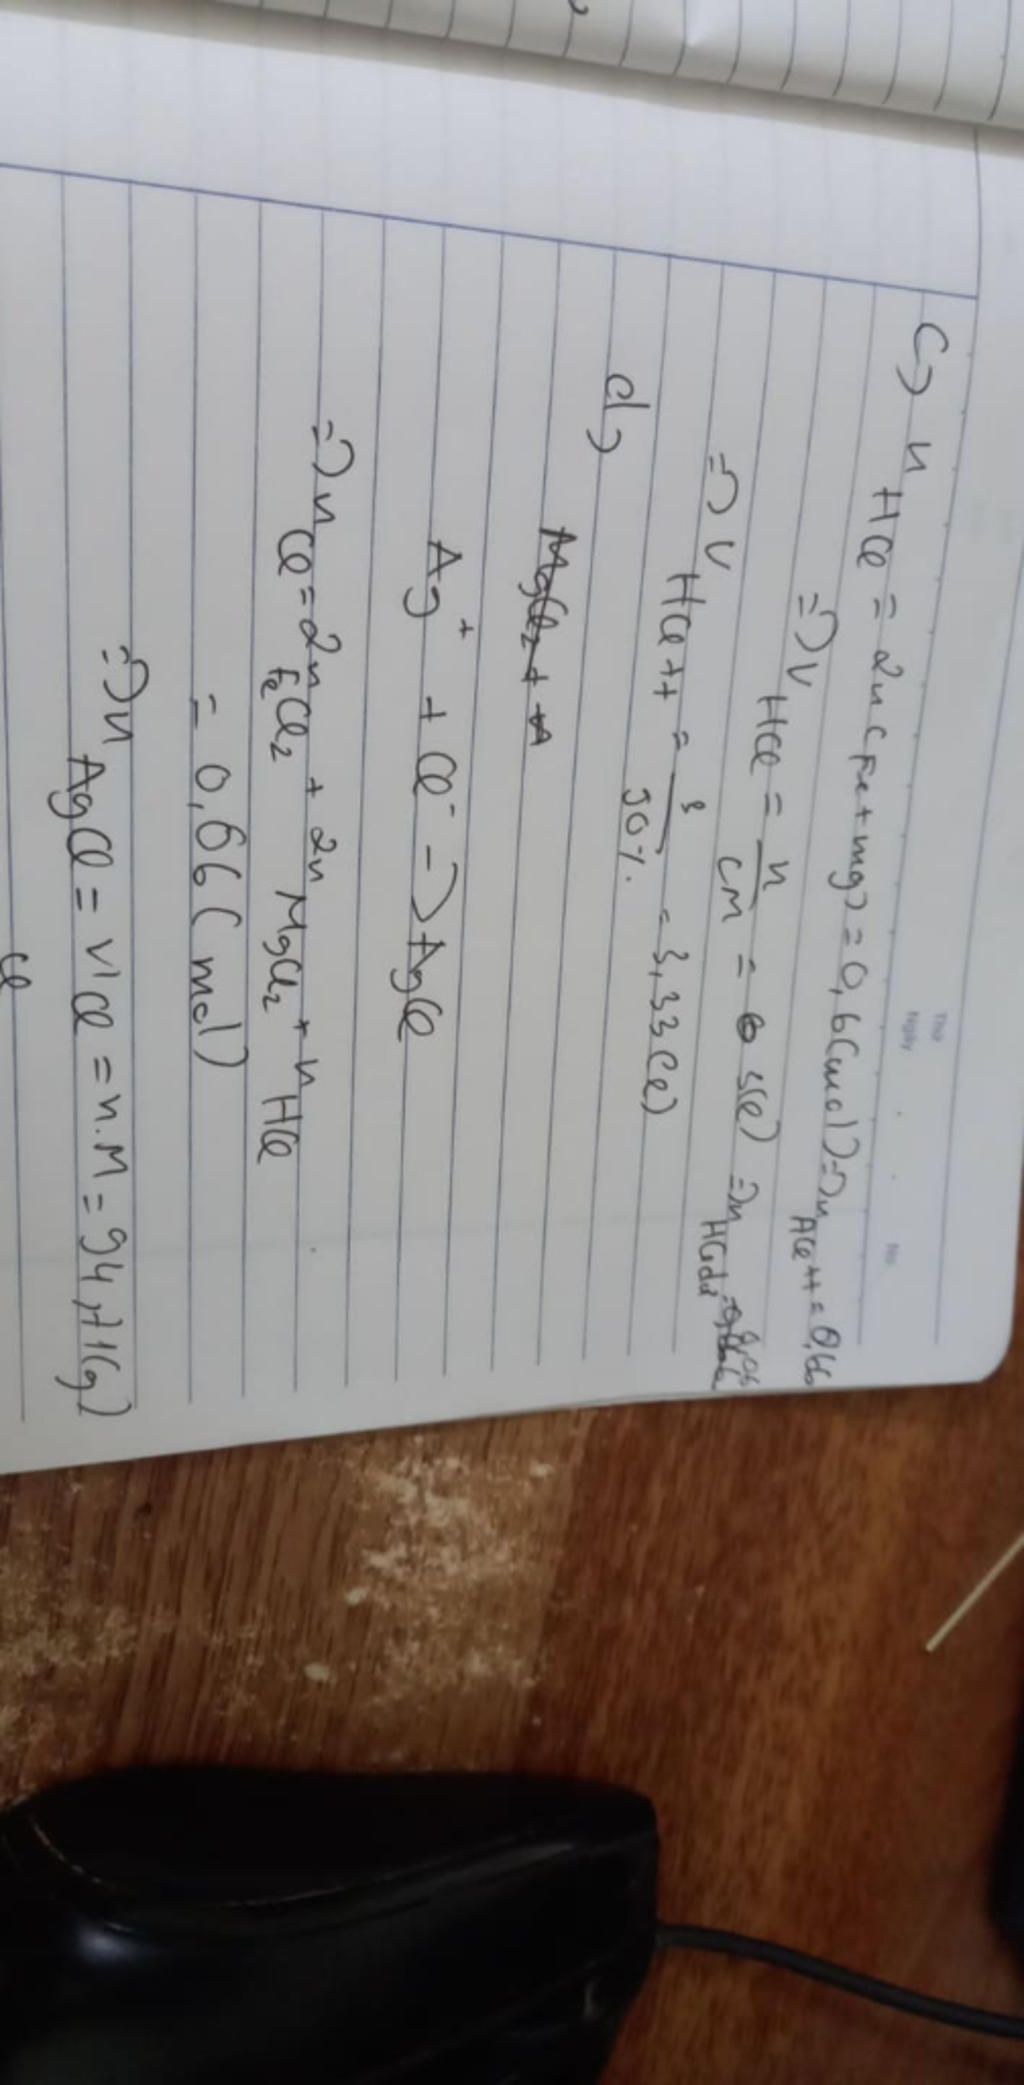 Thứ
Ngày . . No.
c) nHCl = 2n(Fe+mg) = 0,6(mol) => nHCltt = 0,66
=> VHCl = n/CM = 3(l) => nHCldư = 0,06
=> VHCltt = 3/90% = 3,33(l)
d)
MgCl2 +
Ag+ + Cl- -> AgCl
=> nCl = 2nFeCl2 + 2nMgCl2 + nHCl
= 0,66(mol)
=> nAgCl = nCl = n.M = 94,71(g)
Cl